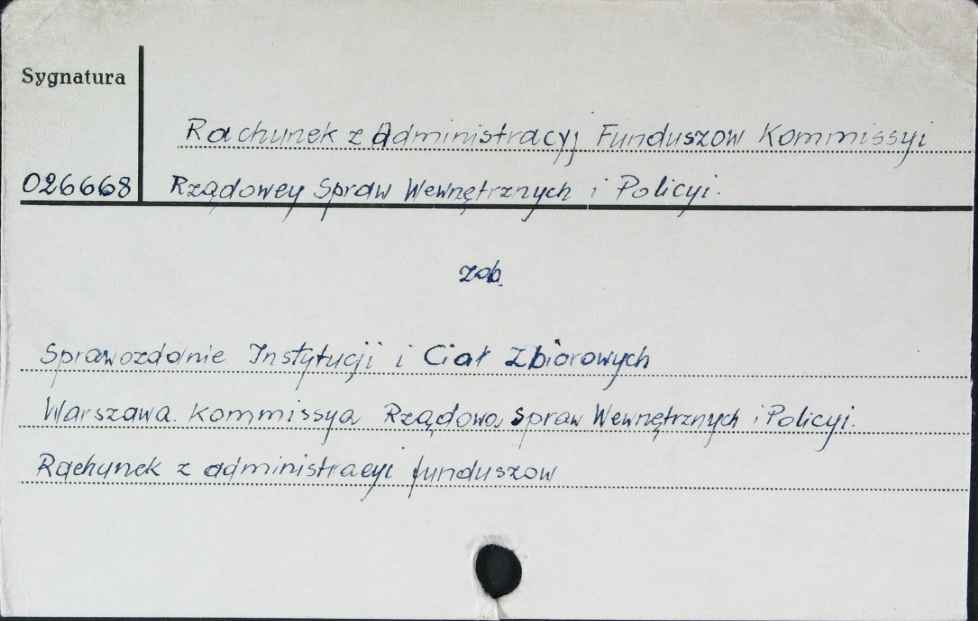 Sygnatura
Rachunek z Administracyj Funduszow Kommissyi
026668 Rządowey Spraw Wewnętrznych i Policyi.
zob.
Sprawozdanie Instytucji i Ciał Zbiorowych
Warszawa. Kommissya Rządowa Spraw Wewnętrznych i Policyi.
Rachunek z administracyi funduszow